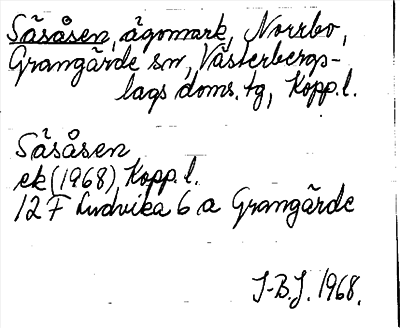 Såsåsen, ägomark, Norrbo,
Grangärde sn, Västerbergs-
lags doms. tg, Kopp. l.
Såsåsen
ek (1968) Kopp. l.
12 F Ludvika 6 a Grangärde
J-B.J. 1968.